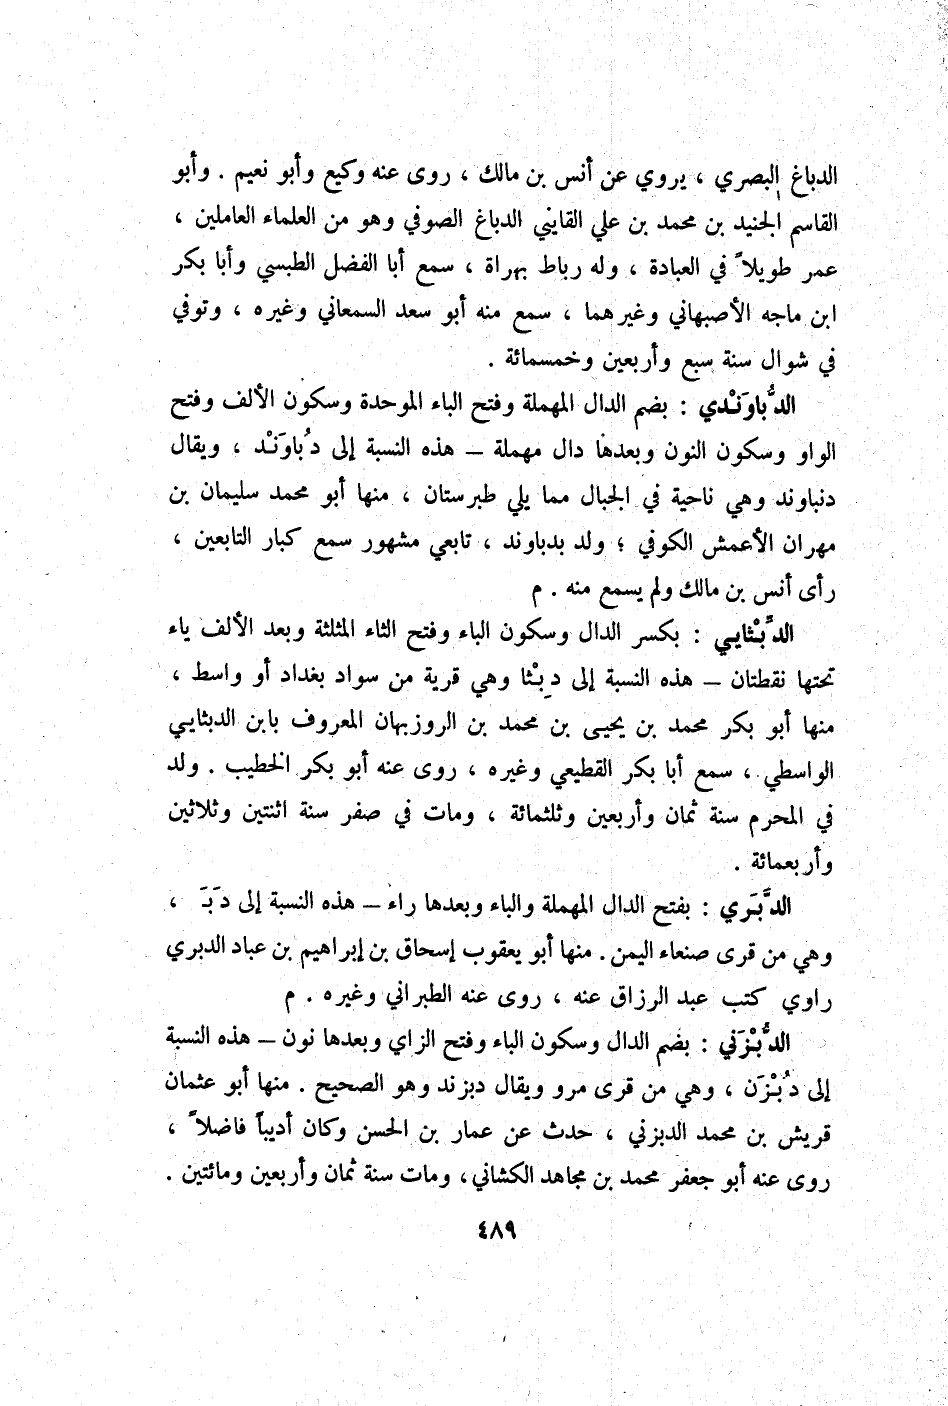 الدباغ البصري ، يروي عن أنس بن مالك ، روى عنه وكيع وأبو نعيم . وأبو
القاسم الجنيد بن محمد بن علي القايني الدباغ الصوفي وهو من العلماء العاملين ،
عمر طويلاً في العبادة ، وله رباط بهراة ، سمع أبا الفضل الطبسي وأبا بكر
ابن ماجه الأصبهاني وغيرهما ، سمع منه أبو سعد السمعاني وغيره ، وتوفي
في شوال سنة سبع وأربعين وخمسمائة .
الدُّباوَنْدي : بضم الدال المهملة وفتح الباء الموحدة وسكون الألف وفتح
الواو وسكون النون وبعدها دال مهملة – هذه النسبة إلى دُباوَنْد ، ويقال
دنباوند وهي ناحية في الجبال مما يلي طبرستان ، منها أبو محمد سليمان بن
مهران الأعمش الكوفي ؛ ولد بدباوند ، تابعي مشهور سمع كبار التابعين ،
رأى أنس بن مالك ولم يسمع منه . م
الدِّبْثايي : بكسر الدال وسكون الباء وفتح الثاء المثلثة وبعد الألف ياء
تحتها نقطتان – هذه النسبة إلى دِبْثا وهي قرية من سواد بغداد أو واسط ،
منها أبو بكر محمد بن يحيى بن محمد بن الروزبهان المعروف بابن الدبثايي
الواسطي ، سمع أبا بكر القطيعي وغيره ، روى عنه أبو بكر الخطيب . ولد
في المحرم سنة ثمان وأربعين وثلثمائة ، ومات في صفر سنة اثنتين وثلاثين
وأربعمائة .
الدَّبَري : بفتح الدال المهملة والباء وبعدها راء – هذه النسبة إلى دَبَـَ ،
وهي من قرى صنعاء اليمن . منها أبو يعقوب إسحاق بن إبراهيم بن عباد الدبري
راوي كتب عبد الرزاق عنه ، روى عنه الطبراني وغيره . م
الدُّبْزَني : بضم الدال وسكون الباء وفتح الزاي وبعدها نون – هذه النسبة
إلى دُبْزَن ، وهي من قرى مرو ويقال دبزند وهو الصحيح . منها أبو عثمان
قريش بن محمد الدبزني ، حدث عن عمار بن الحسن وكان أديباً فاضلاً ،
روى عنه أبو جعفر محمد بن مجاهد الكشاني ، ومات سنة ثمان وأربعين ومائتين .
٤٨٩